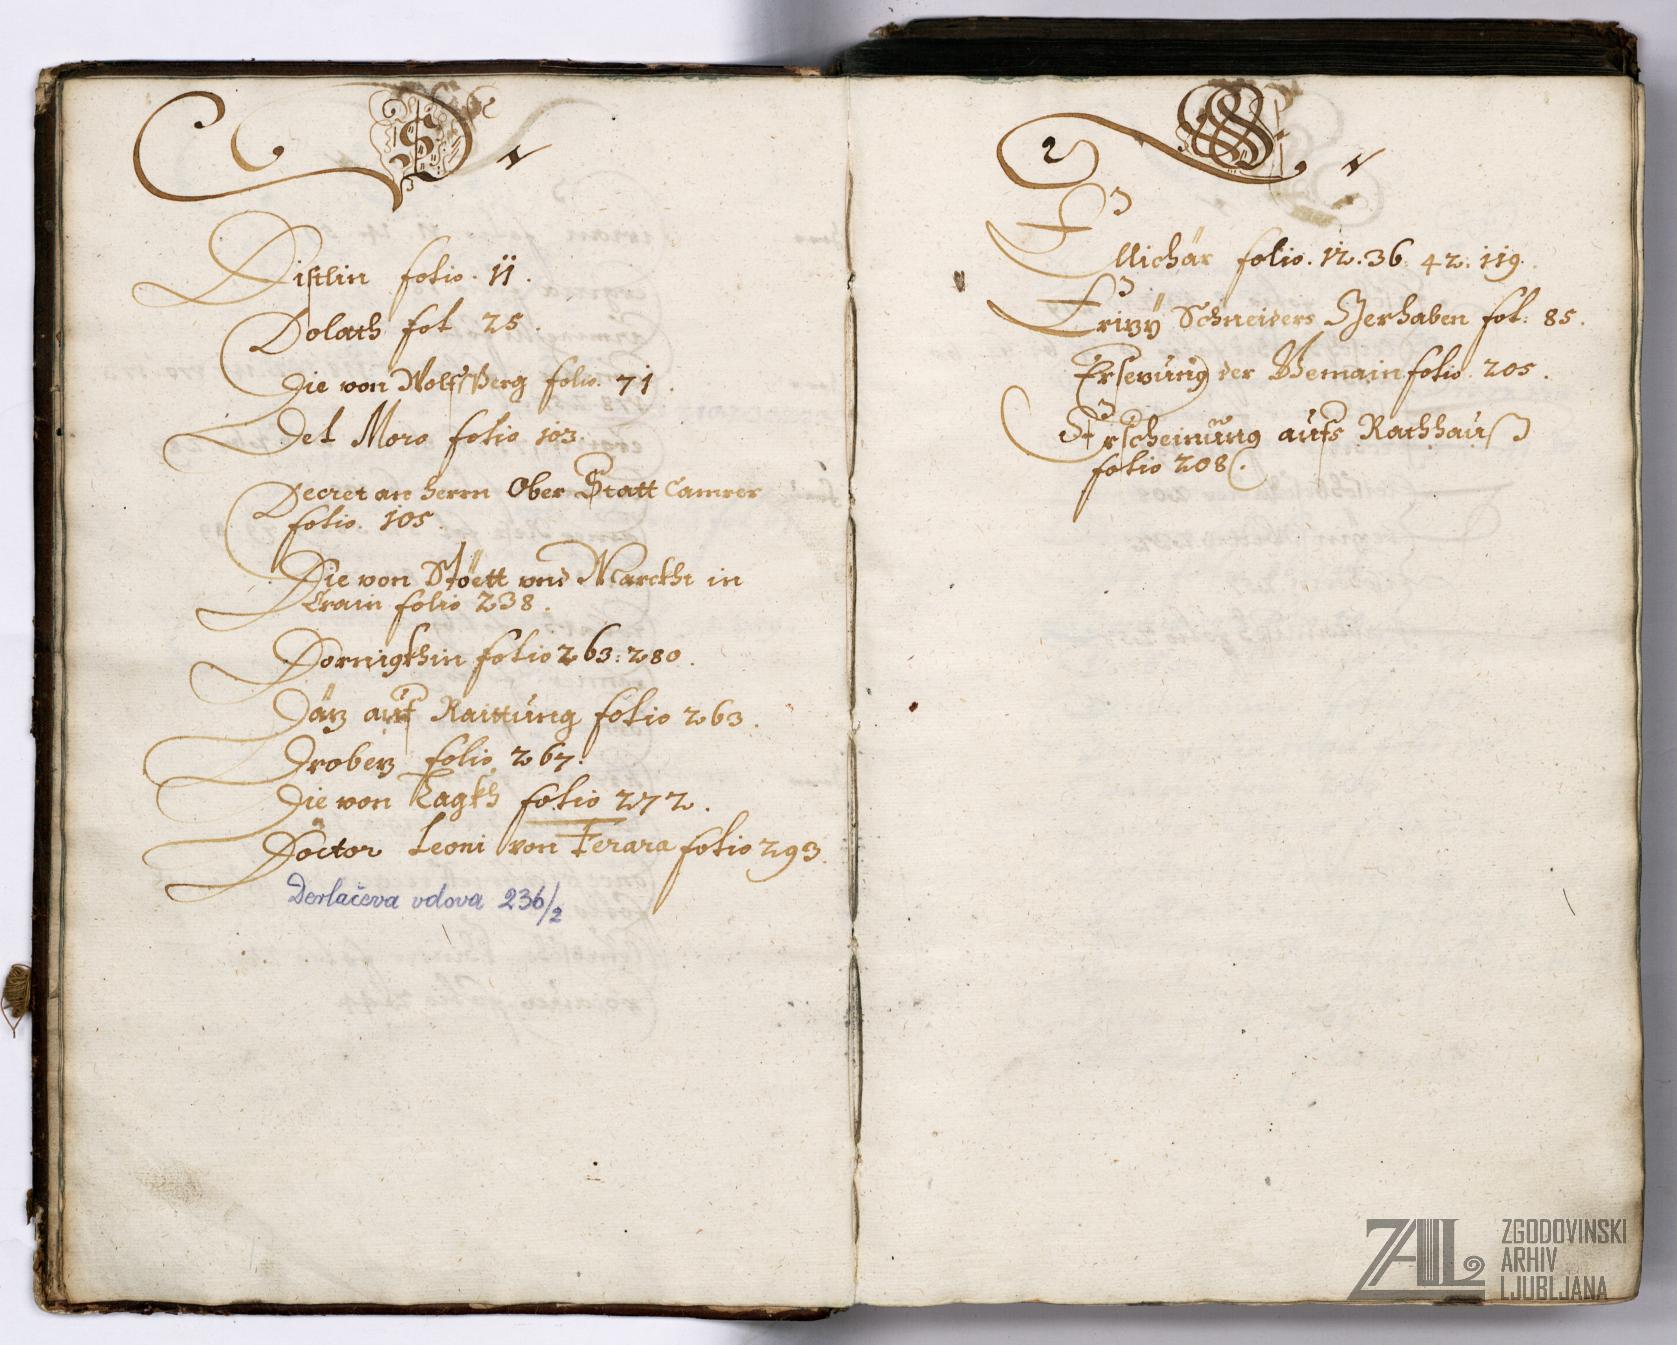 D
Distlin folio. 11.
Dolath fol 25.
Die von Wolfsberg folio. 71.
Del Moro folio 103.
Decret an herrn Ober Statt Camrer
folio. 105.
Die von Stöett vnd Marckht in
Crain folio 238.
Dornigkhin folio 263: 280.
Därz auf Raittung folio 263.
Droberz folio 267.
Die von Lagkh folio 272.
Doctor Leoni von Ferara folio 293.
Derlačeva vdova 236/2
2
E
Ellichär folio. 12. 36. 42. 119.
Erizÿ Schneiders Gerhaben fol: 85.
Ersezung der Gemain folio 205.
Erscheinung aufs Rathhauß
folio 208.
ZAL ZGODOVINSKI
ARHIV
LJUBLJANA